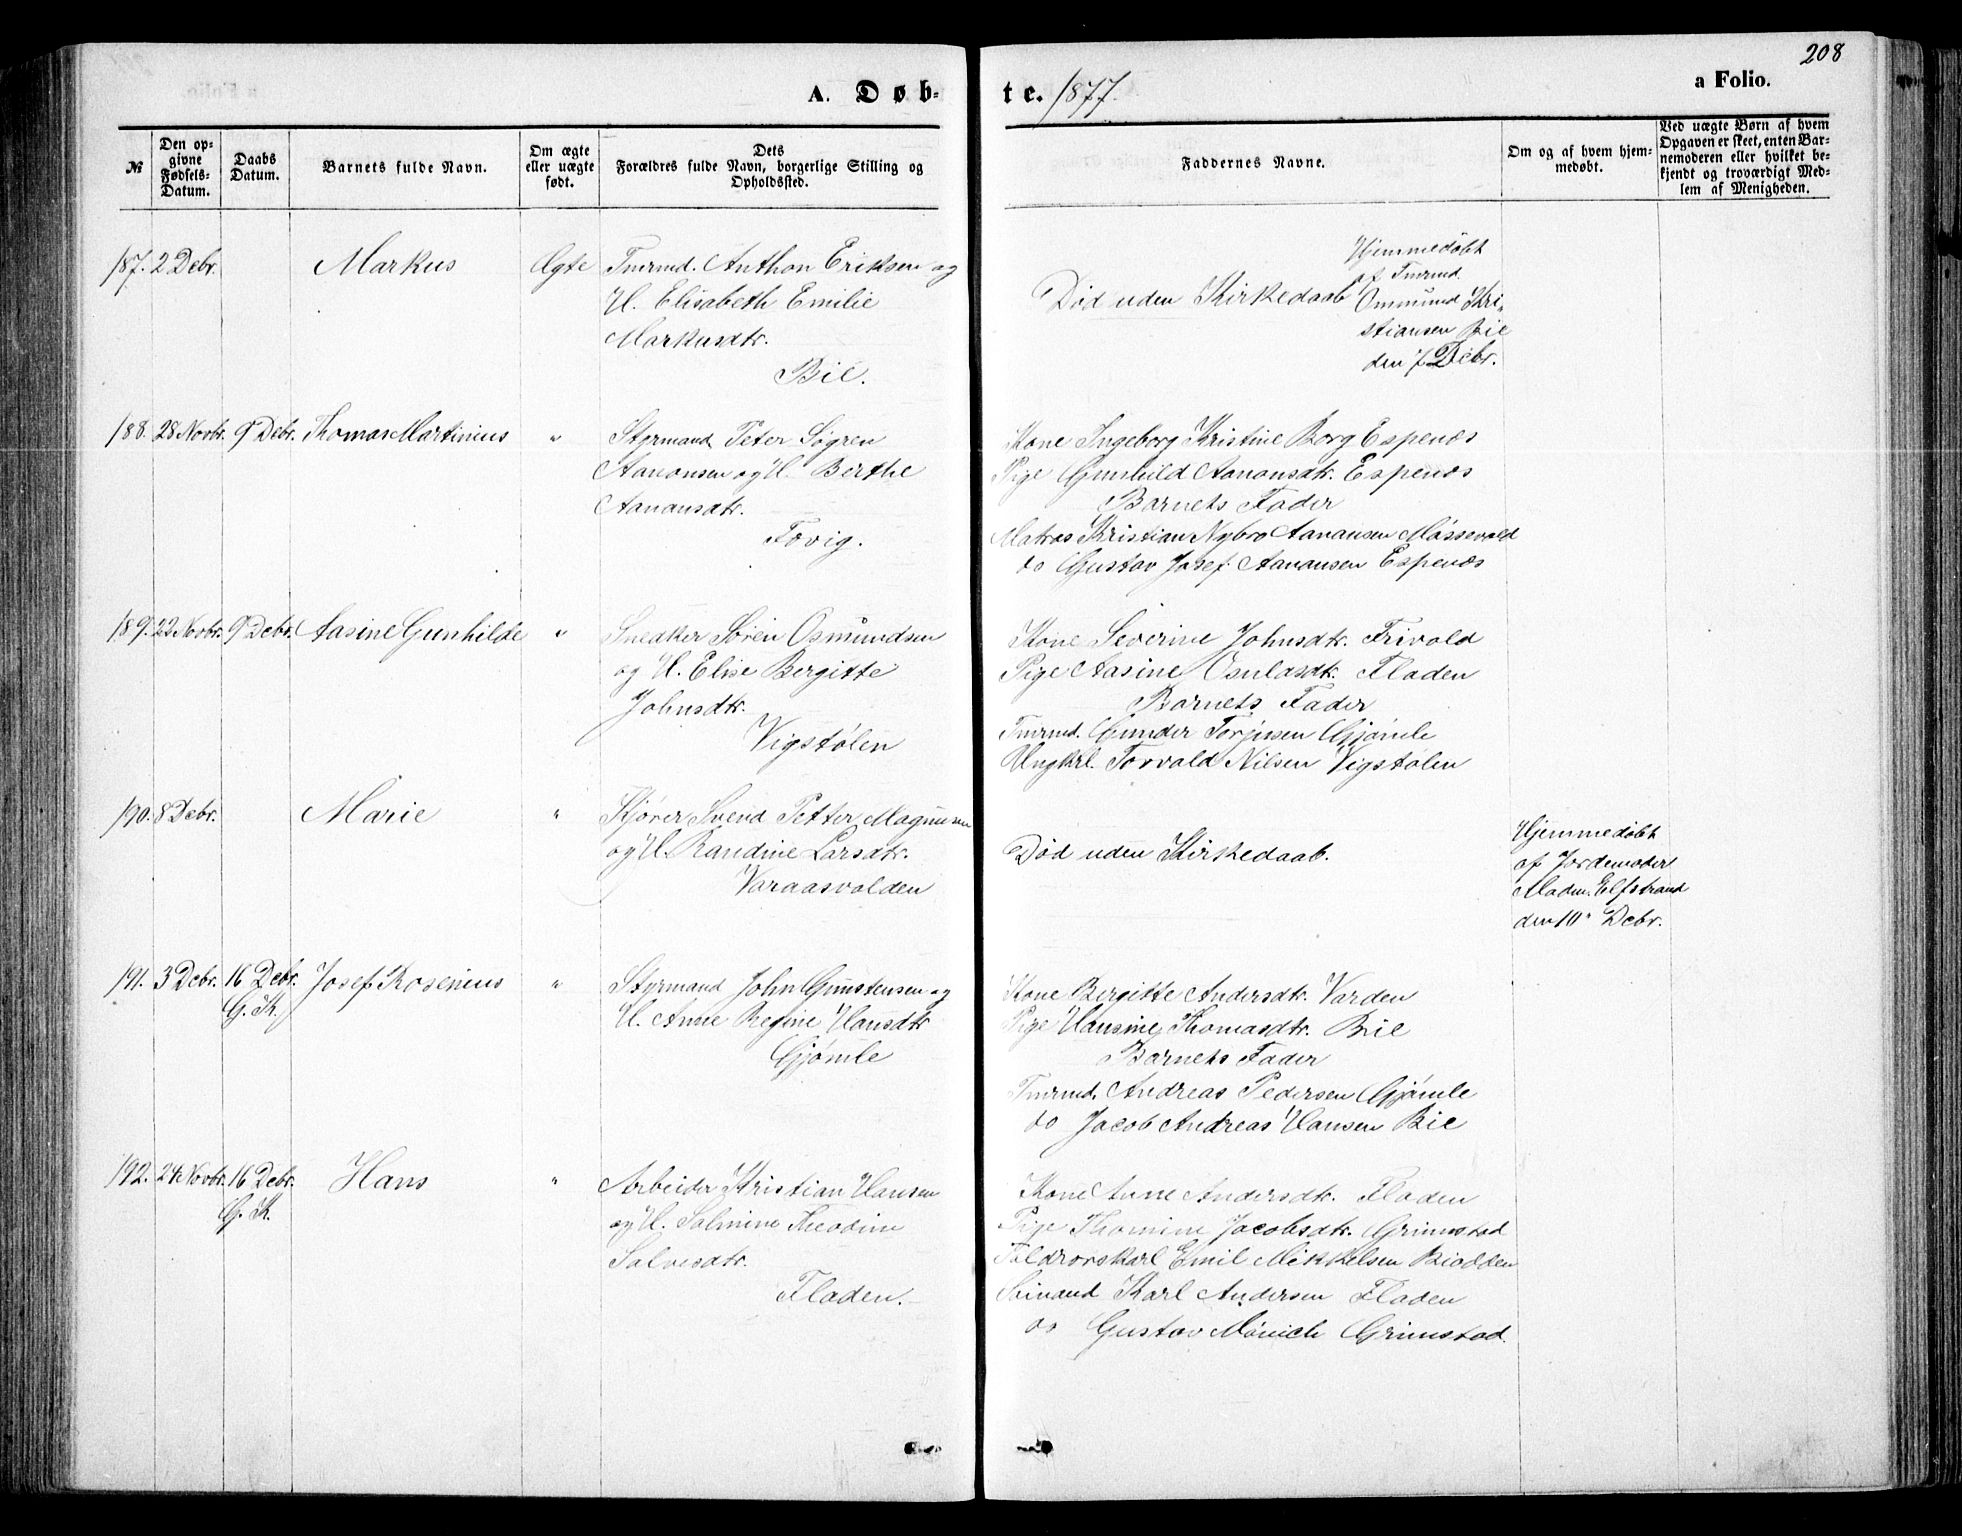 208
A. Døbte. 1877.
a Folio.
№
Den opgivne Fødsels-Datum.
Daabs Datum.
Barnets fulde Navn.
Om ægte eller uægte født.
Dets Forældres fulde Navn, borgerlige Stilling og Opholdssted.
Faddernes Navne.
Om og af hvem hjemmedøbt.
Ved uægte Børn af hvem Opgaven er skeet, enten Barnemoderen eller hvilket bekjendt og troværdigt Medlem af Menigheden.
187. 2 Debr. Markus Ægte Tmrmd. Anthon Eriksen og
H. Elisabeth Emilie
Markusdtr.
Bie.
Død uden Kirkedaab
Hjemmedøbt
af Tmrmd.
Ommund Kri-
stiansen Bie
den 7 Debr.
188. 28 Novbr. 9 Debr. Thomas Martinius " Styrmand Peter Søgren
Aanonsen og H. Berthe
Aanansdtr.
Fævig.
Kone Ingeborg Kristine Borg Espenæs
Pige Gunhild Aanonsdtr. Espenæs
Barnets Fader
Matros Kristian Nybro Aanansen Møssevold
do Gustav Josef Aanansen Espenæs
189. 22 Novbr. 9 Debr. Aasine Gunhilde " Snedker Søren Osmundsen
og H. Elise Bergitte
Johnsdtr.
Vigstølen
Kone Severine Johnsdtr. Frivold
Pige Aasine Osuldsdtr. Fladen
Barnets Fader
Tmrmd. Gunder Torjusen Gjømle
Ungkrl. Torvald Nilsen Vigstølen
190. 8 Debr. Marie " Kjører Svend Petter Magnusen
og H. Randine Larsdtr.
Varaasvolden
Død uden Kirkedaab.
Hjemmedøbt
af Jordemoder
Madm. Elfstrand
den 10' Debr.
191. 3 Debr. 16 Debr. G. K. Josef Rosenius " Styrmand John Gunstensen og
H. Anne Regine Hansdtr
Gjømle
Kone Bergitte Andersdtr. Varden
Pige Hansine Thomasdtr. Bie
Barnets Fader
Tmrmd. Andreas Pedersen Gjømle
do Jacob Andreas Hansen Bie
192. 24 Novbr. 16 Debr. G. K. Hans " Arbeider Kristian Hansen
og H. Salmine Theodine
Salvesdtr.
Fladen.
Kone Anne Andersdtr. Fladen
Pige Thomine Jacobsdtr. Grimstad
Emil Mikkelsen Biodden
Sømand Karl Andersen Fladen
do Gustav Mønich Grimstad.